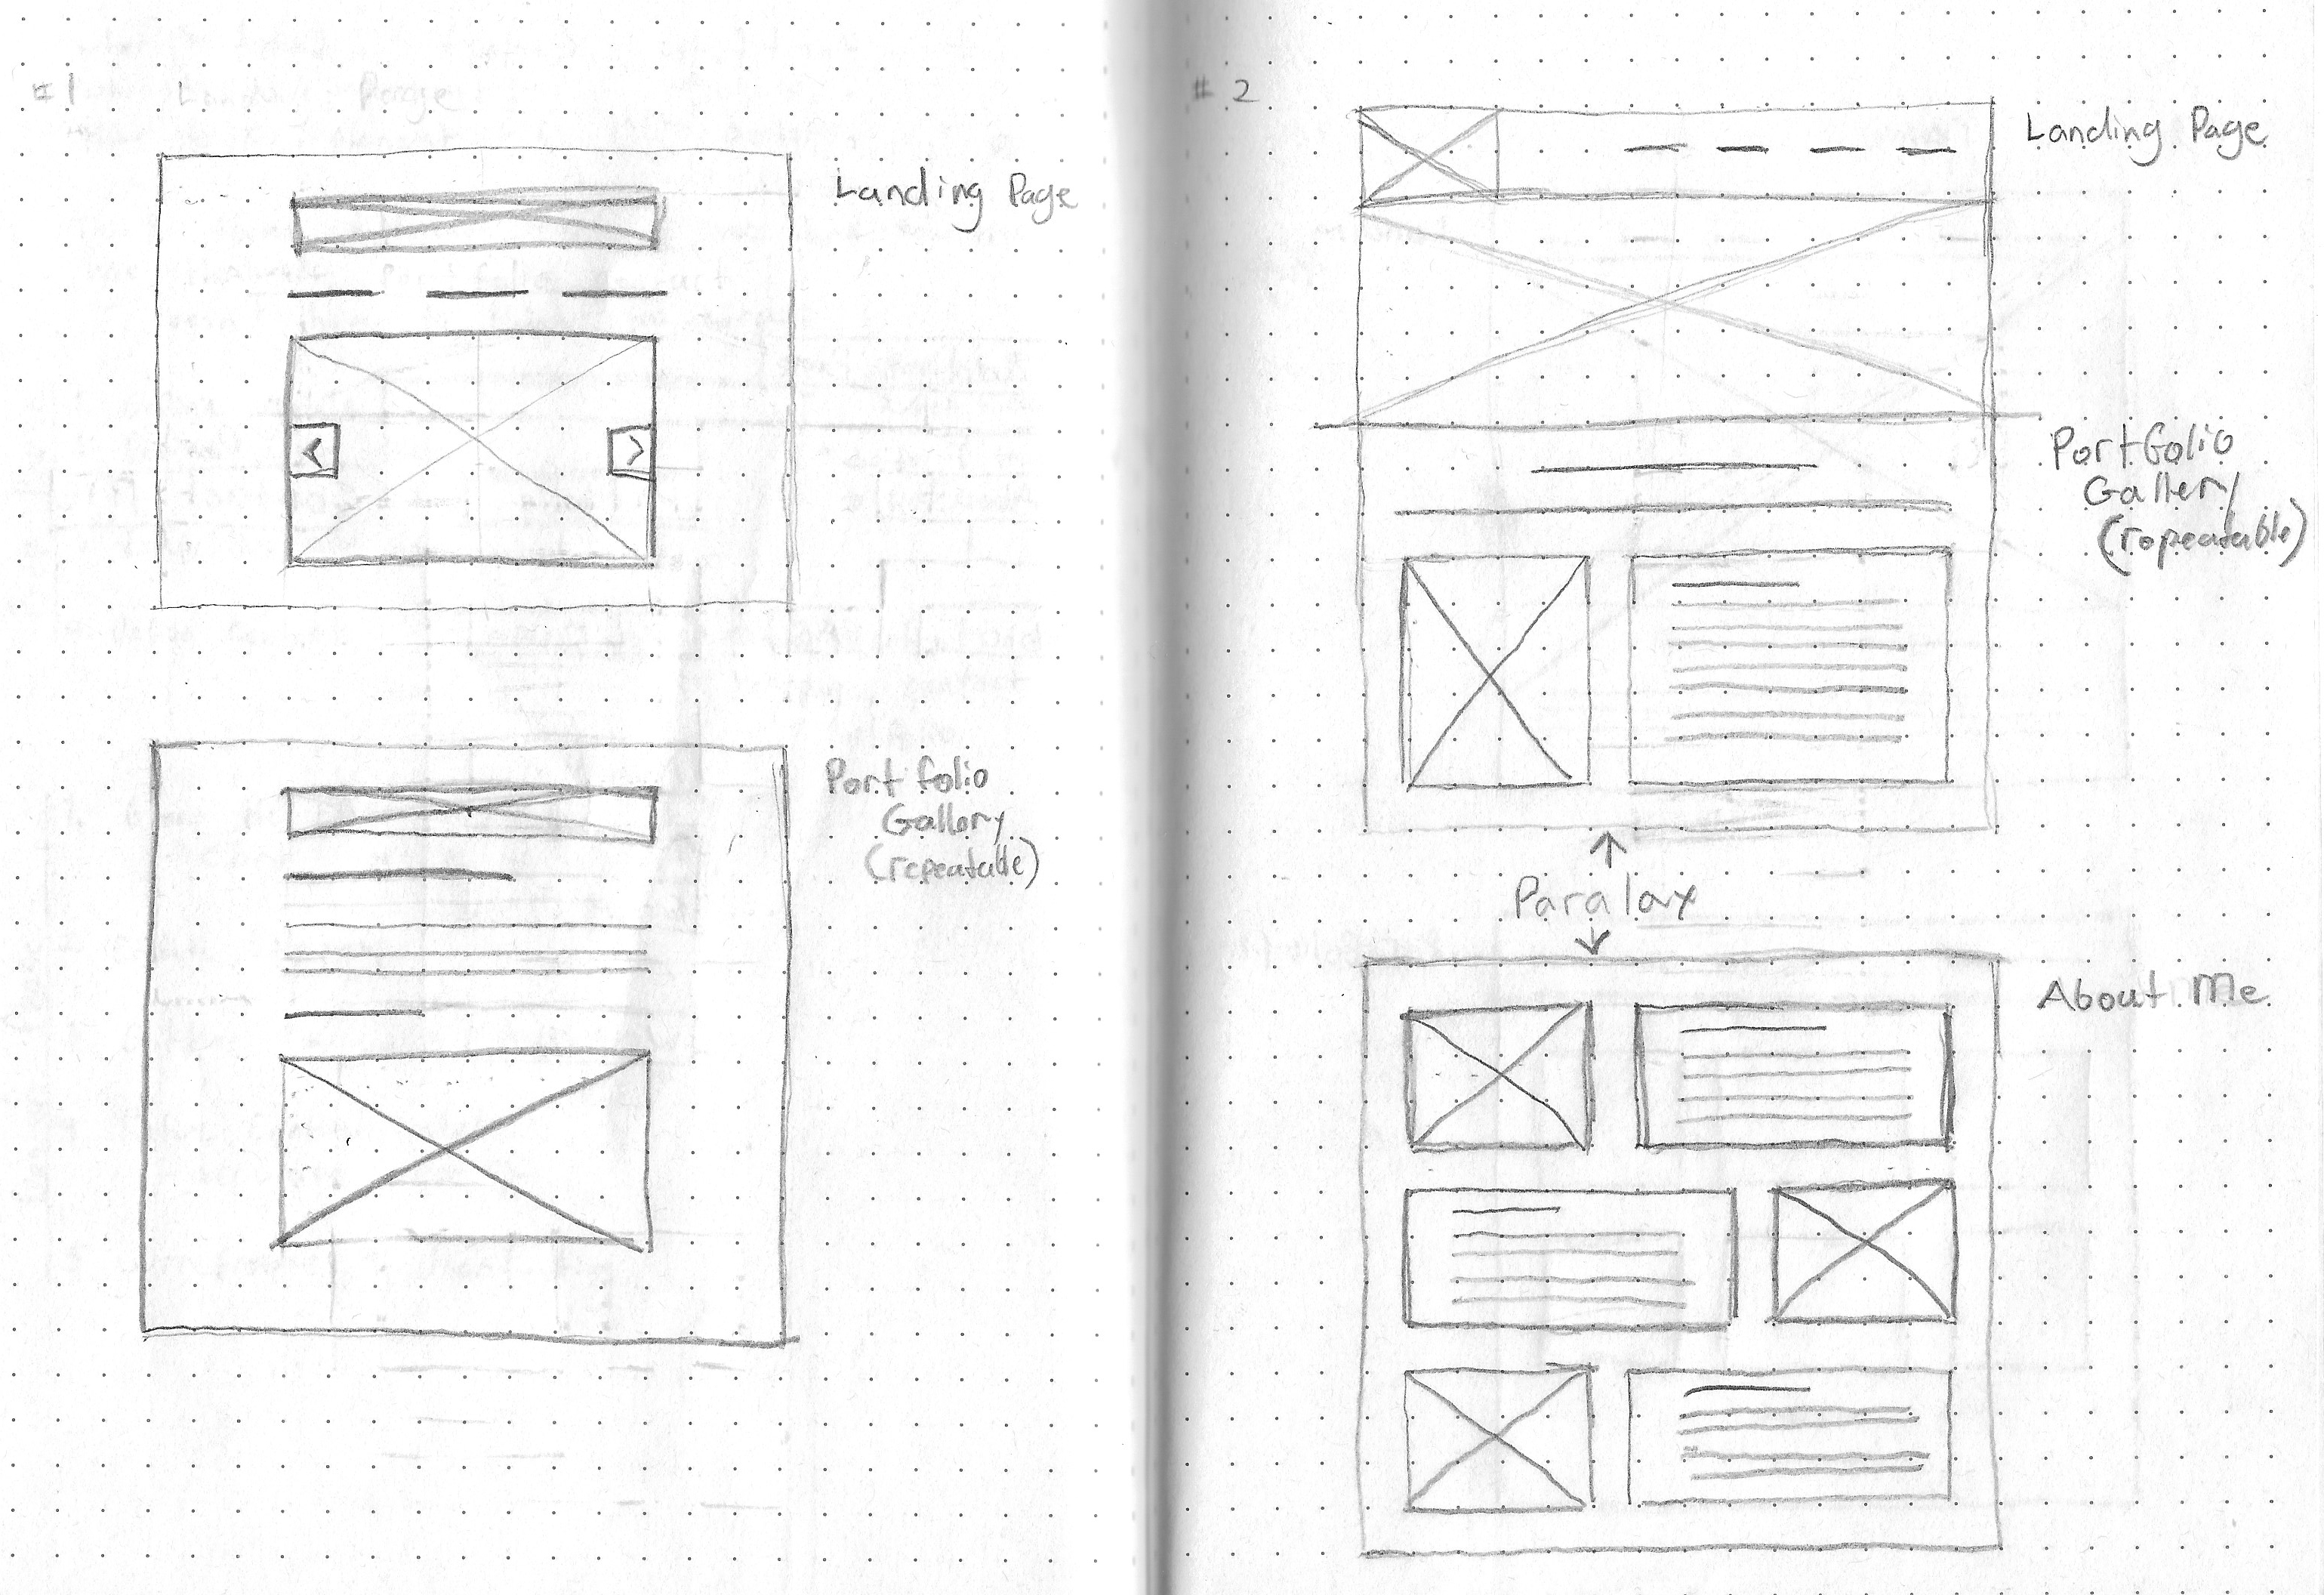 #1
Landing Page
<
>
Portfolio
Gallery
(repeatable)
#2
Landing Page
Portfolio
Gallery
(repeatable)
Paralax
About Me